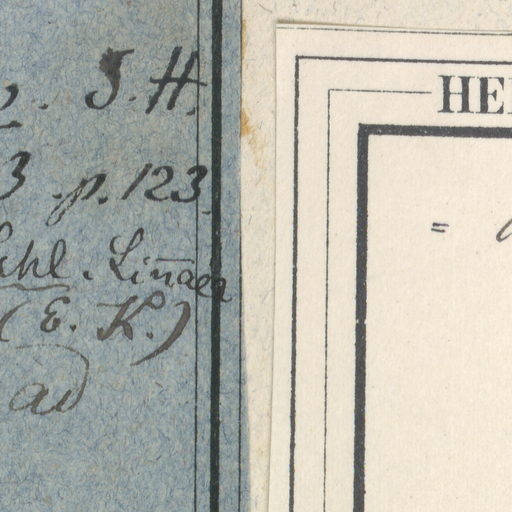 . J. H.
3 . p. 123.
Linnaea
(E. K.)
ad
HE
=